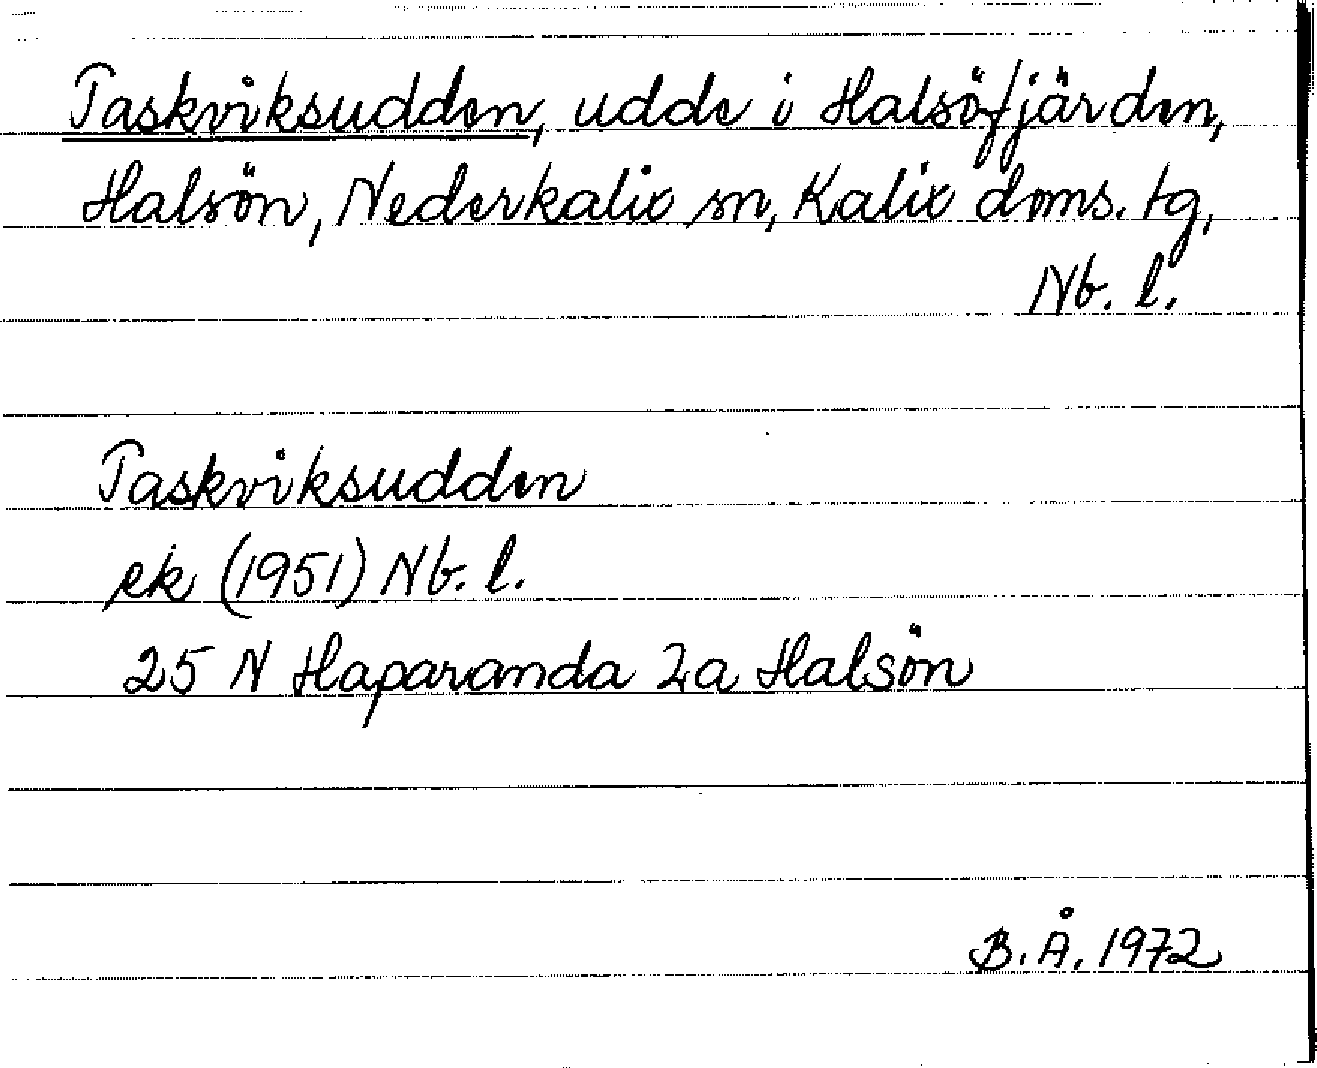 Taskviksudden, udde i Halsöfjärden,
Halsön, Nederkalix sn, Kalix doms. tg,
Nb. l.
Taskviksudden
ek (1951) Nb. l.
25 N Haparanda 2a Halsön
B. Å. 1972